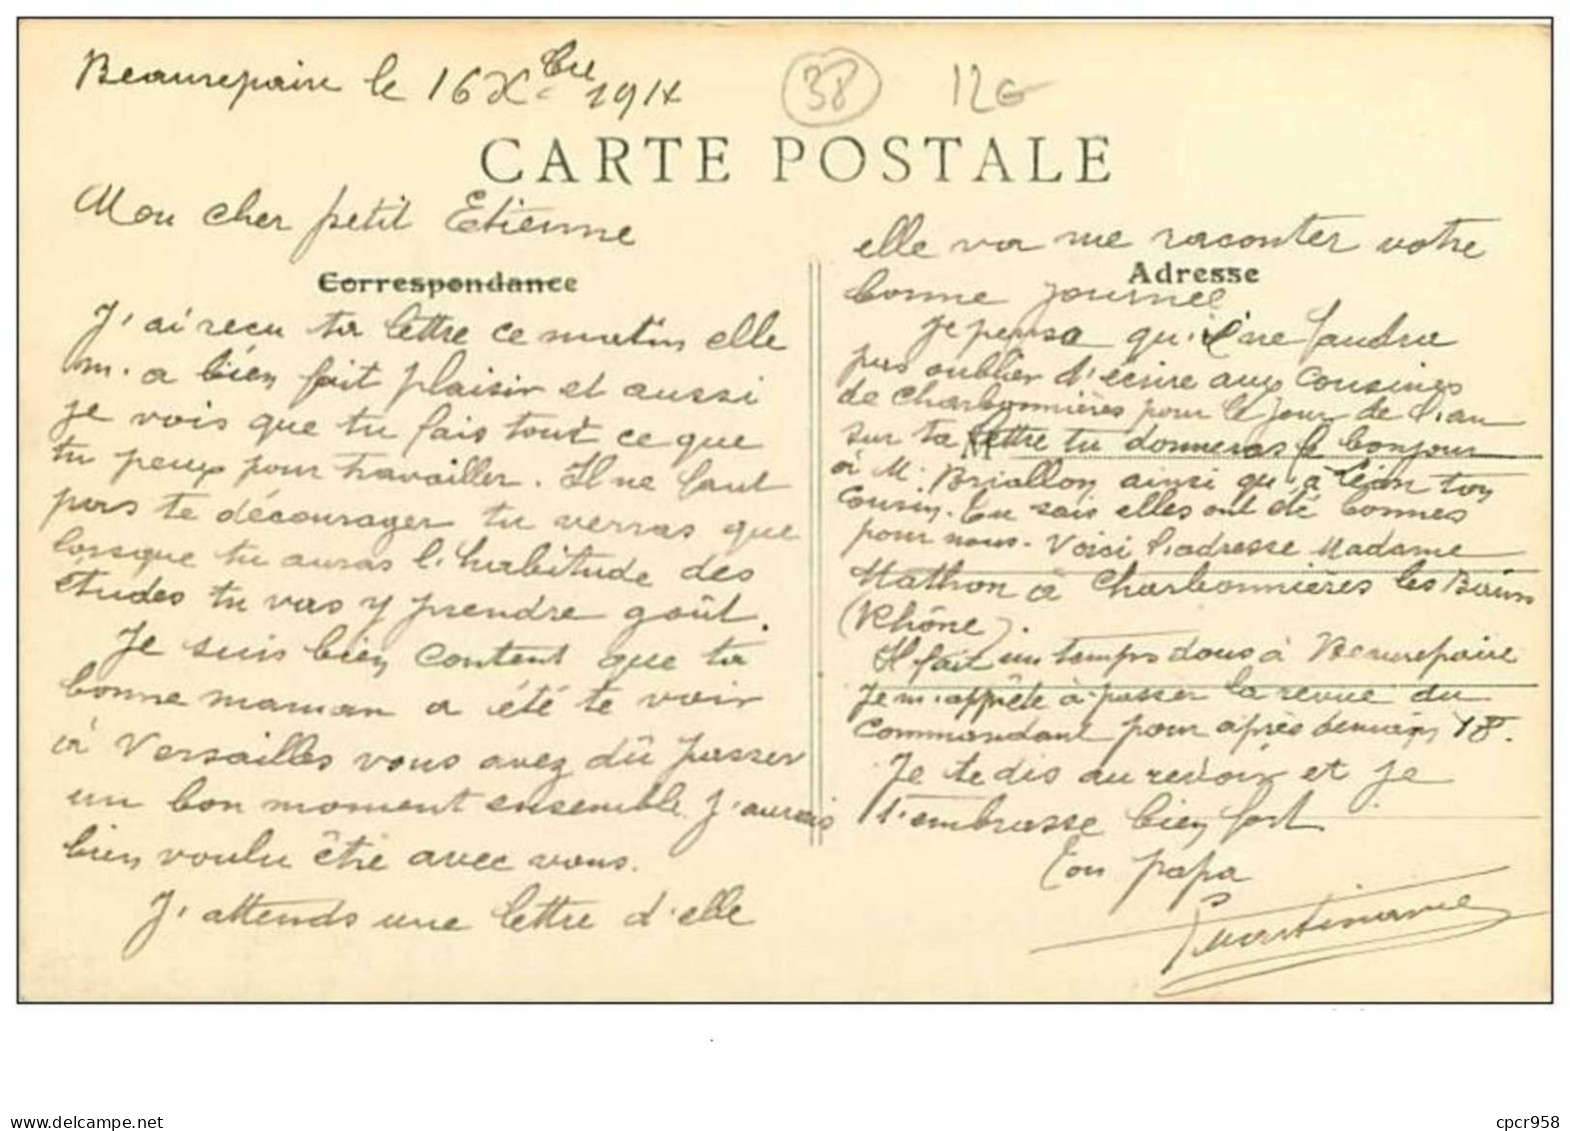 Beaurepaire le 16 Xbre 1914
38
12G
CARTE POSTALE
Mon cher petit Etienne
Correspondance
J'ai recu ta lettre ce matin elle
m'a bien fait plaisir et aussi
je vois que tu fais tout ce que
tu peux pour travailler. Il ne faut
pas te décourager tu verras que
lorsque tu auras l'habitude des
études tu vas y prendre goût.
Je suis bien content que ta
bonne maman a été te voir
à Versailles vous avez dû passer
un bon moment ensemble J'aurais
bien voulu être avec vous.
J'attends une lettre d'elle
elle va me raconter votre
Adresse
bonne journee
Je pense qu'il ne faudra
pas oublier d'écrire aux cousines
de Charbonnières pour le jour de l'an
sur ta lettre tu donneras le bonjour
à M. Briallon ainsi qu'à Léon ton
cousin. Tu sais elles ont été bonnes
pour nous. Voici l'adresse Madame
Mathon à Charbonnières les Bains
(Rhône).
Il fait un temps doux à Beaurepaire
Je m'apprête à passer la revue du
Commandant pour après demain 18.
Je te dis au revoir et je
t'embrasse bien fort
Ton papa
delcampe.net
cpcr958